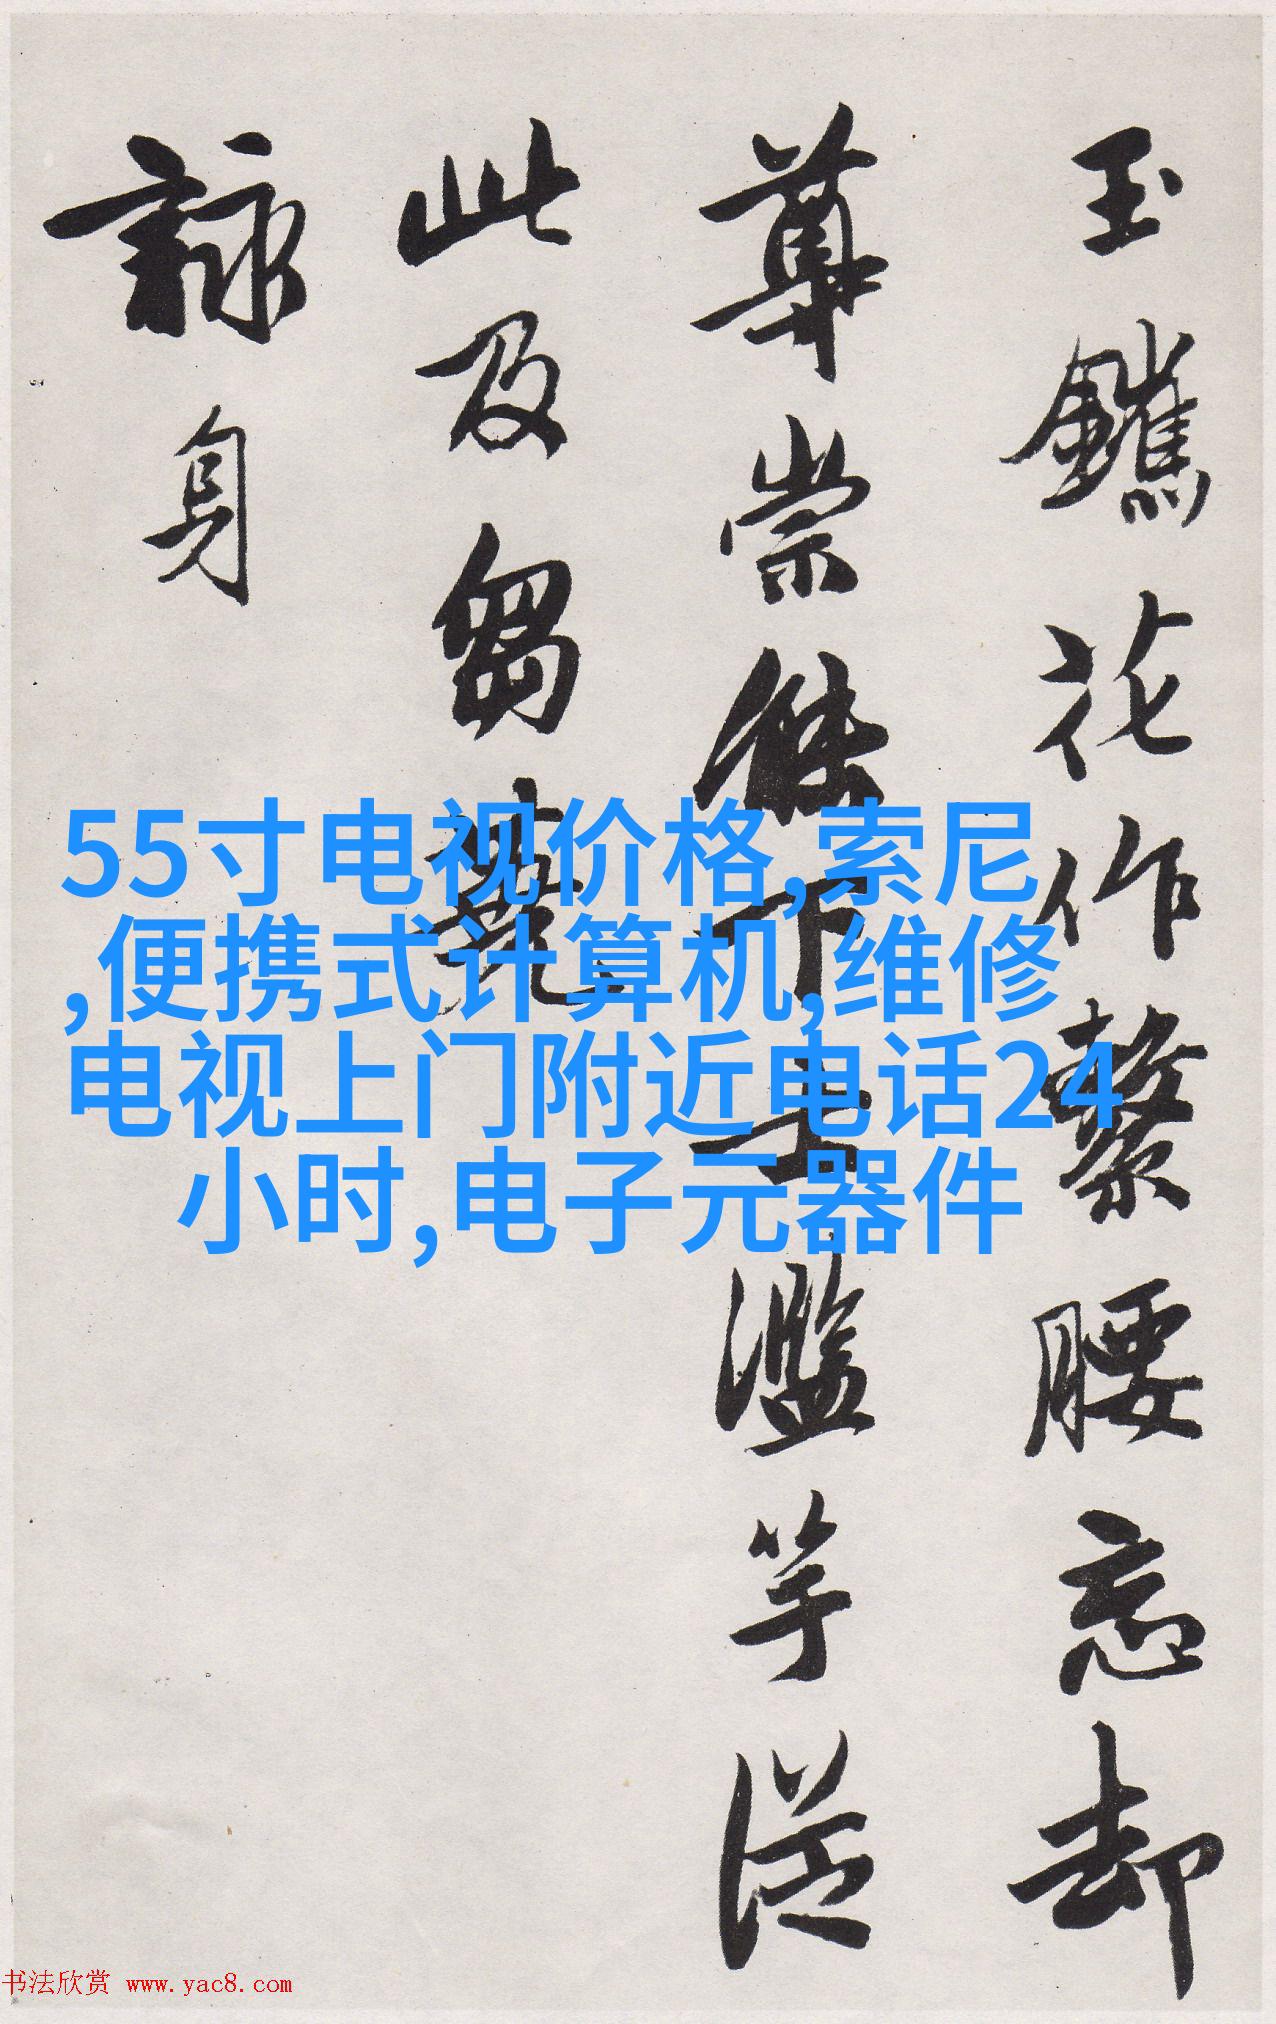 玉鑣花作繫腰忘却
尊崇無下士濫竽従
此及芻蕘
詠身
55寸电视价格,索尼
,便携式计算机,维修
电视上门附近电话24
小时,电子元器件
书法欣赏 www.yac8.com